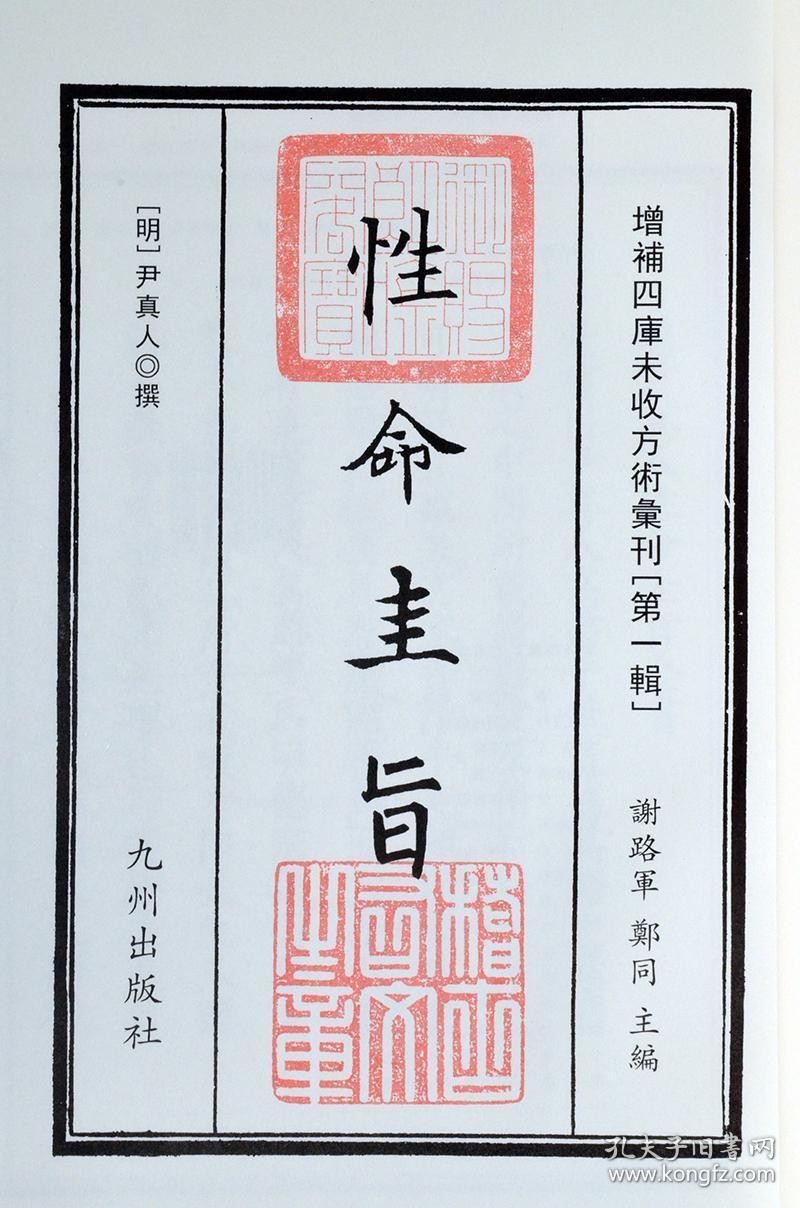 增補四庫未收方術彙刊［第一輯］
謝路軍 鄭同 主編
性命圭旨
稽古
右文
之章
［明］尹真人◎撰
九州出版社
孔夫子旧書网
www.kongfz.com